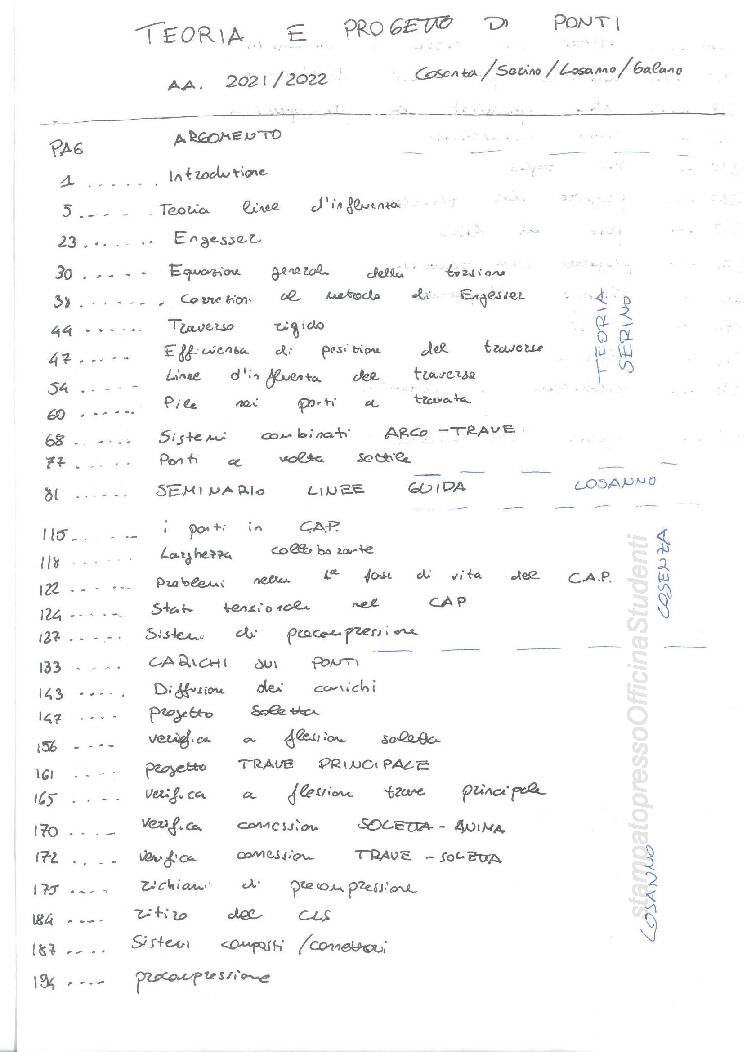 TEORIA E PROGETTO DI PONTI
AA. 2021/2022 Cosenza/Serino/Losanno/Galano
PAG ARGOMENTO
1 ...... Introduzione
5 ..... Teoria linee d'influenza
23 ...... Engesser
30 ..... Equazione generale della torsione
38 ....... Correzioni al metodo di Engesser
44 ...... Traverso rigido
47 ..... Efficienza di posizione del traverso
54 .... Linee d'influenza del traverso
60 ...... Pile nei ponti a travata
68 ...... Sistemi combinati ARCO-TRAVE
77 ...... Ponti a volta sottile
TEORIA SERINO
81 ...... SEMINARIO LINEE GUIDA LOSANNO
115 ...... i ponti in C.A.P.
118 ....... Larghezza collaborante
122 ...... Problemi nella 1ª fase di vita del C.A.P.
124 ...... Stato tensionale nel CAP
127 ..... Sistemi di precompressione
COSENZA
133 .... CARICHI SUI PONTI
143 ..... Diffusione dei carichi
147 .... progetto soletta
156 .... verifica a flessione soletta
161 .... progetto TRAVE PRINCIPALE
165 .... verifica a flessione trave principale
170 .... verifica connessione SOLETTA-ANIMA
172 .... verifica connessione TRAVE-SOLETTA
175 .... richiami di precompressione
184 .... ritiro del CLS
187 .... Sistemi composti/connettori
194 .... precompressione
LOSANNO
stampatopressoOfficinaStudenti